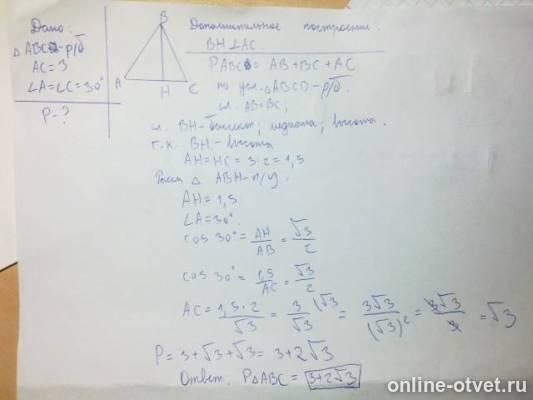 Дано:
△ABC - р/б
AC = 3
∠A=∠C=30°
P-?
B
A
H
C
Дополнительное построение:
BH⊥AC.
PABC = AB+BC+AC
по усл. △ABCD-р/б.
сл. AB=BC;
сл. BH-биссект; медиана; высота.
т.к. BH - высота
AH=HC = 3:2=1,5
Рассм △ ABH-п/у.
AH=1,5
∠A=30°.
cos 30° = AH/AB = √3/2
cos 30° = 1,5/AC = √3/2
AC = 1,5·2/√3 = 3/√3 (√3 = 3√3/(√3)² = 3√3/3 = √3
P = 3+√3+√3 = 3+2√3
Ответ. P△ABC = 3+2√3
online-otvet.ru